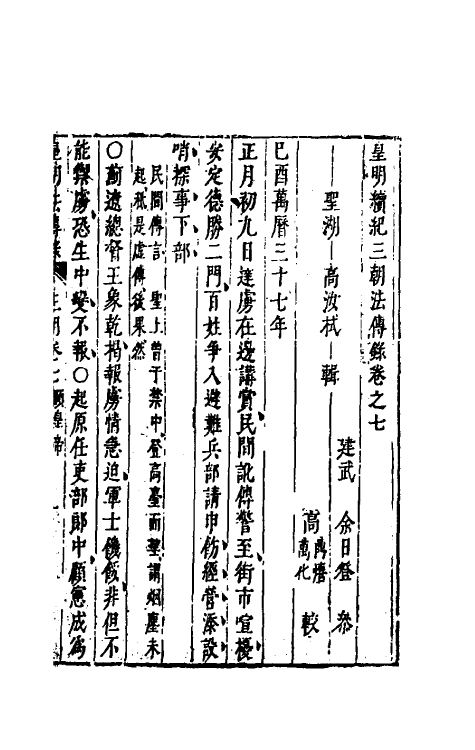 皇明續紀三朝法傳錄卷之七
聖湖 高汝栻 輯
建武 余日登 叅
高 萬化 較
己酉萬曆三十七年
正月初九日達虜在邊講賞民間訛傳警至街市喧擾
安定德勝二門百姓爭入避難兵部請申飭經營添設
哨探事下部
民間傳言 聖上曾于禁中登高臺而望謂烟塵未
起秪是虛傳後果然
〇薊遼總督王象乾揭報虜情急迫軍士饑餒非但不
能禦虜恐生中變不報〇起原任吏部郎中顧憲成為
皇明法傳錄 三朝卷七 顯皇帝